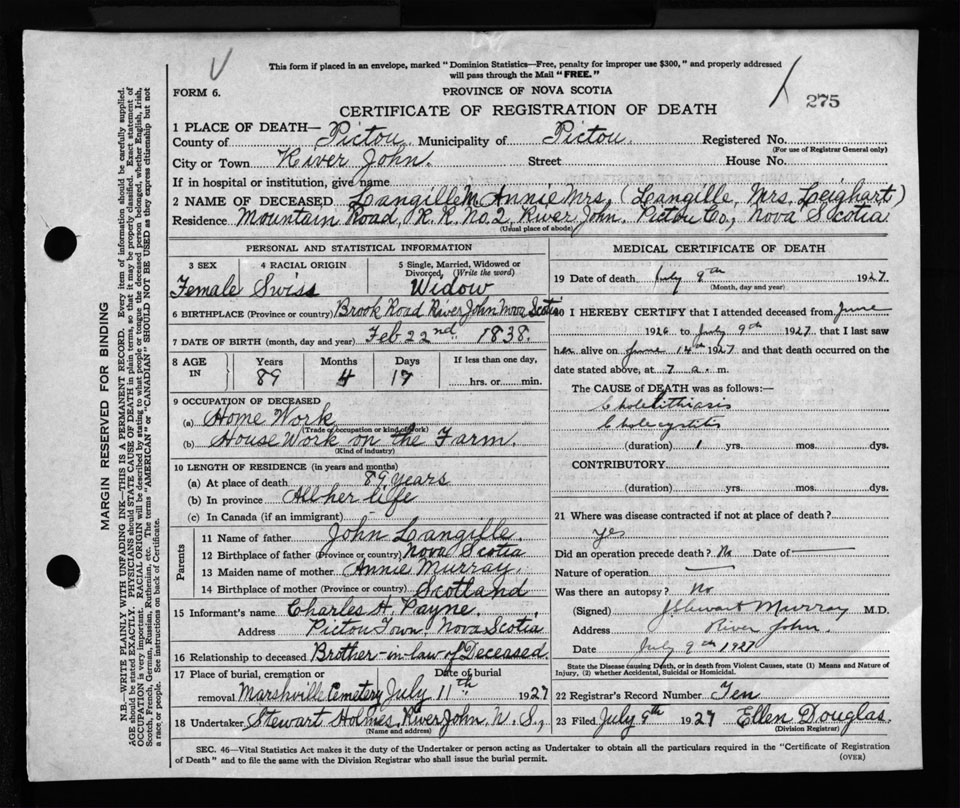 This form if placed in an envelope, marked "Dominion Statistics—Free, penalty for improper use $300," and properly addressed
will pass through the Mail "FREE."
FORM 6.
PROVINCE OF NOVA SCOTIA
275
CERTIFICATE OF REGISTRATION OF DEATH
1 PLACE OF DEATH—
County of Pictou. Municipality of Pictou. Registered No.
(For use of Registrar General only)
City or Town River John. Street House No.
If in hospital or institution, give name
2 NAME OF DECEASED Langille M. Annie Mrs. (Langille, Mrs. Leighart)
Residence Mountain Road, R.R. No. 2, River John. Pictou Co, Nova Scotia
(Usual place of abode)
PERSONAL AND STATISTICAL INFORMATION
3 SEX 4 RACIAL ORIGIN 5 Single, Married, Widowed or Divorced, (Write the word)
Female Swiss Widow
6 BIRTHPLACE (Province or country) Brook Road River John Nova Scotia
7 DATE OF BIRTH (month, day and year) Feb. 22nd 1838.
8 AGE IN Years Months Days If less than one day,
89 4 17 hrs. or min.
9 OCCUPATION OF DECEASED
(a) Home Work
(Trade or occupation or kind of work)
(b) House Work on the Farm.
(Kind of industry)
10 LENGTH OF RESIDENCE (in years and months)
(a) At place of death 89 years
(b) In province All her life
(c) In Canada (if an immigrant)
Parents
11 Name of father John Langille.
12 Birthplace of father (Province or country) Nova Scotia
13 Maiden name of mother Annie Murray.
14 Birthplace of mother (Province or country) Scotland
15 Informant's name Charles H. Payne.
Address Pictou Town, Nova Scotia
16 Relationship to deceased Brother-in-law of Deceased.
17 Place of burial, cremation or removal Date of burial
Marshville Cemetery July 11th 1927
18 Undertaker Stewart Holmes, River John, N. S.,
(Name and address)
MEDICAL CERTIFICATE OF DEATH
19 Date of death July 9th 1927.
(Month, day and year)
20 I HEREBY CERTIFY that I attended deceased from June
1926 to July 9th 1927 that I last saw
her alive on June 14th 1927 and that death occurred on the
date stated above, at 7 a. m.
The CAUSE OF DEATH was as follows:
Cholelithiasis
Cholecystitis
(duration) 1 yrs. mos. dys.
CONTRIBUTORY.
(duration) yrs. mos. dys.
21 Where was disease contracted if not at place of death?
yes
Did an operation precede death? No Date of
Nature of operation
Was there an autopsy? No
(Signed) J. Stewart Murray M.D.
Address River John.
Date July 9th 1927
State the Disease causing Death, or in death from Violent Causes, state (1) Means and Nature of
Injury, (2) whether Accidental, Suicidal or Homicidal.
22 Registrar's Record Number Ten
23 Filed July 9th 1927 Ellen Douglas.
(Division Registrar)
SEC. 46—Vital Statistics Act makes it the duty of the Undertaker or person acting as Undertaker to obtain all the particulars required in the "Certificate of Registration
of Death" and to file the same with the Division Registrar who shall issue the burial permit.
(OVER)
MARGIN RESERVED FOR BINDING
N.B.—WRITE PLAINLY WITH UNFADING INK—THIS IS A PERMANENT RECORD. Every item of information should be carefully supplied.
AGE should be stated EXACTLY. PHYSICIANS should STATE CAUSE OF DEATH in plain terms, so that it may be properly classified. Exact statement of
OCCUPATION is very important. RACIAL ORIGIN will be described by stating to what people or tongue the deceased person belonged, whether English, Irish,
Scotch, French, German, Russian, Ruthenian, etc. The terms "AMERICAN" or "CANADIAN" SHOULD NOT BE USED as they express citizenship but not
a race or people. See instructions on back of Certificate.